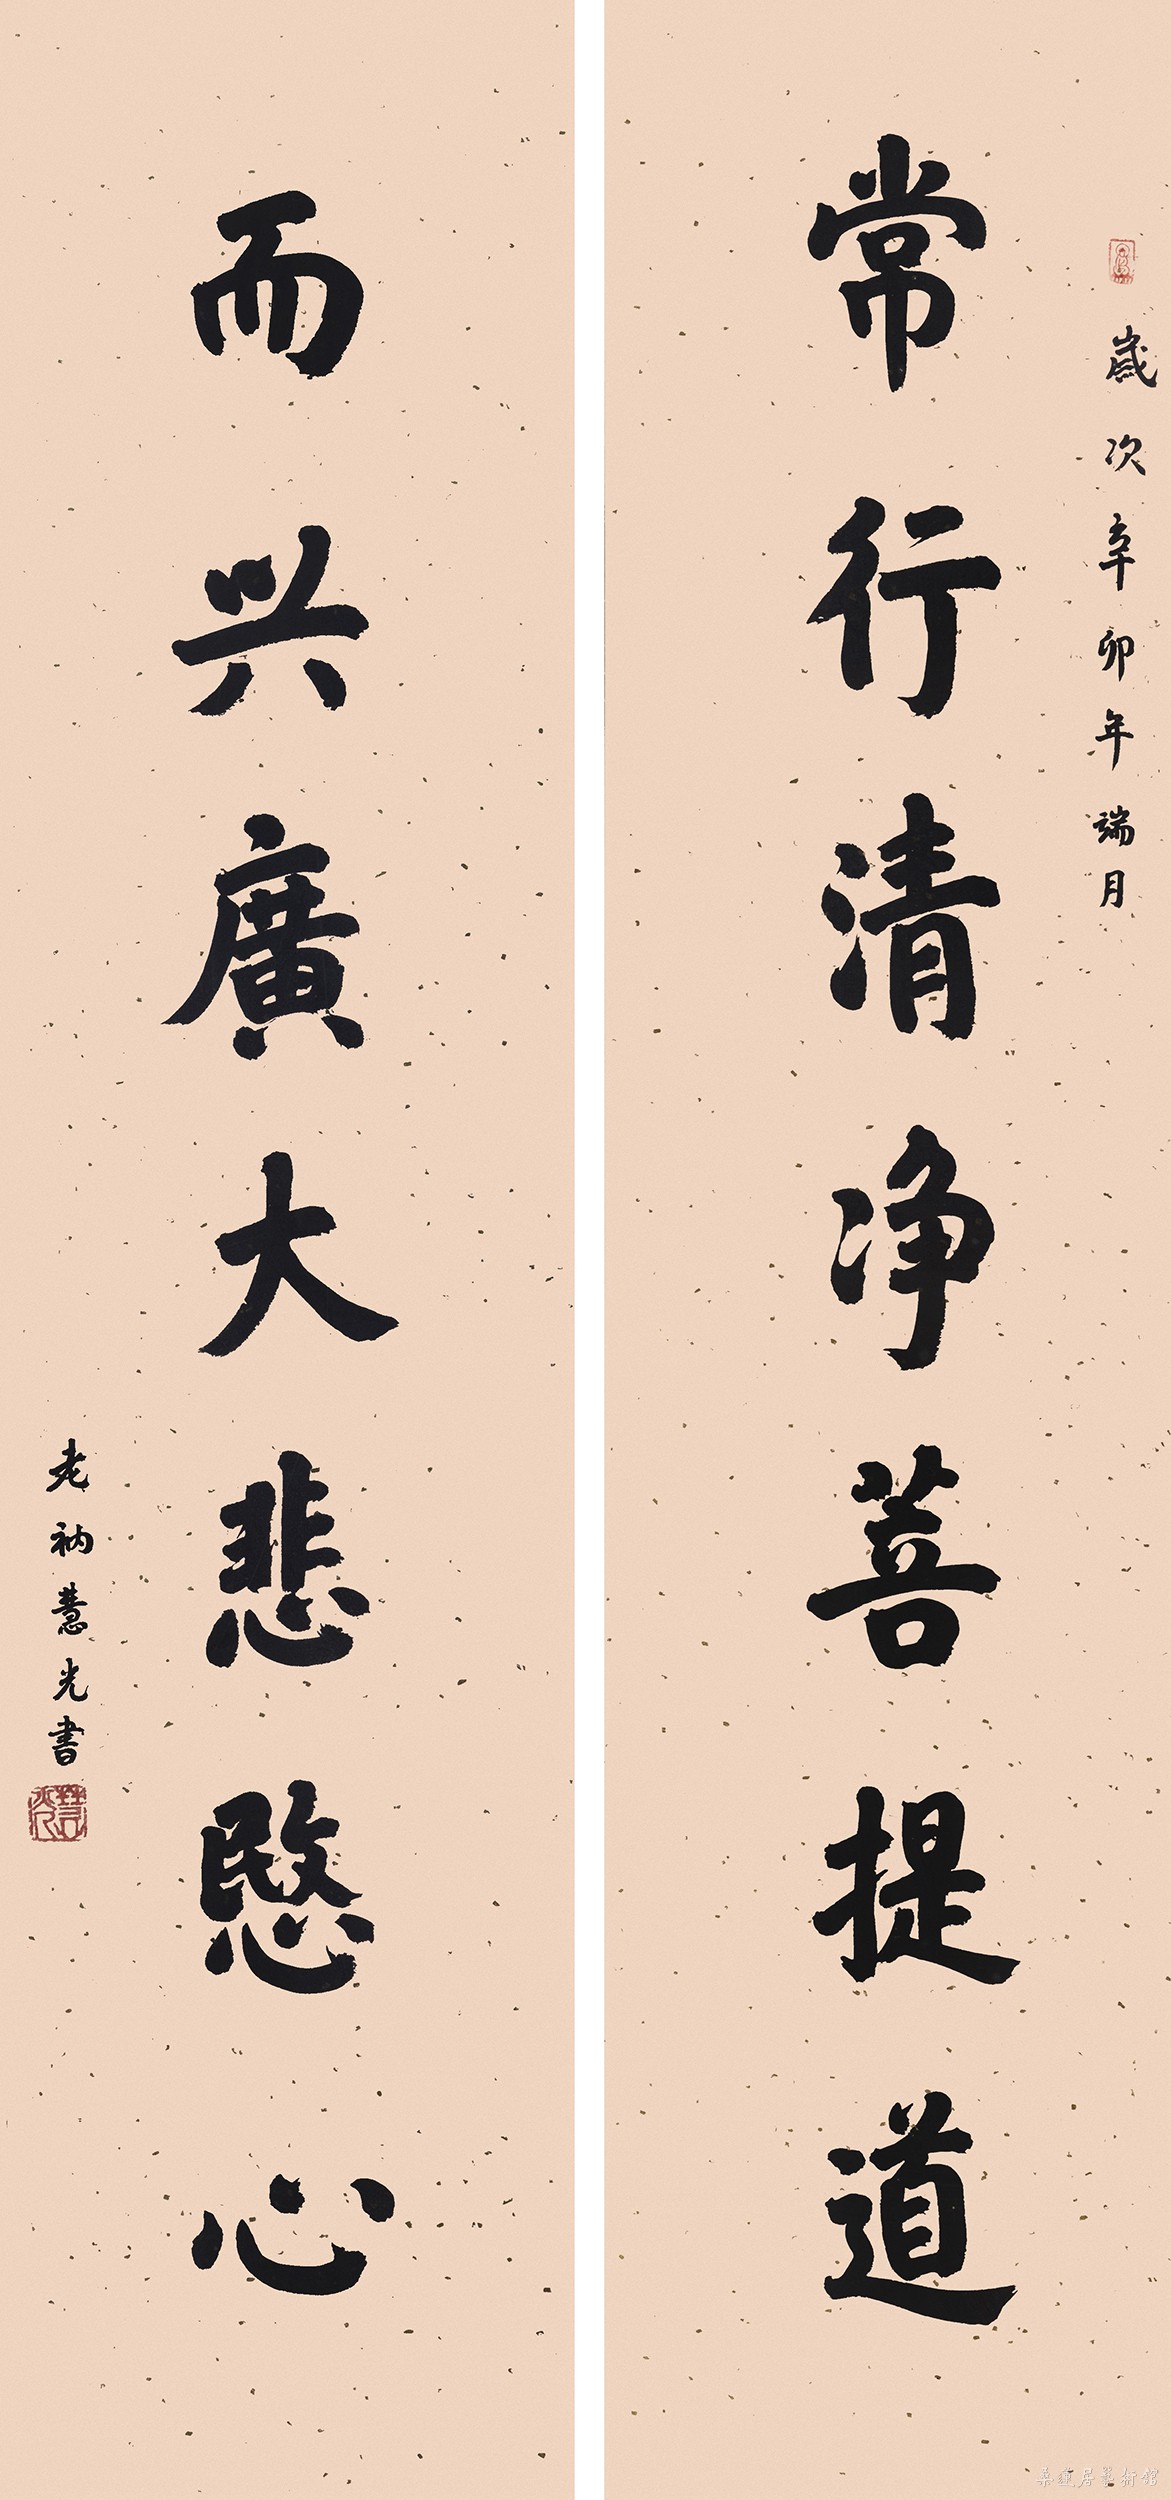 歲次辛卯年端月
常行清净菩提道
而兴廣大悲愍心
老衲慧光書
慧光